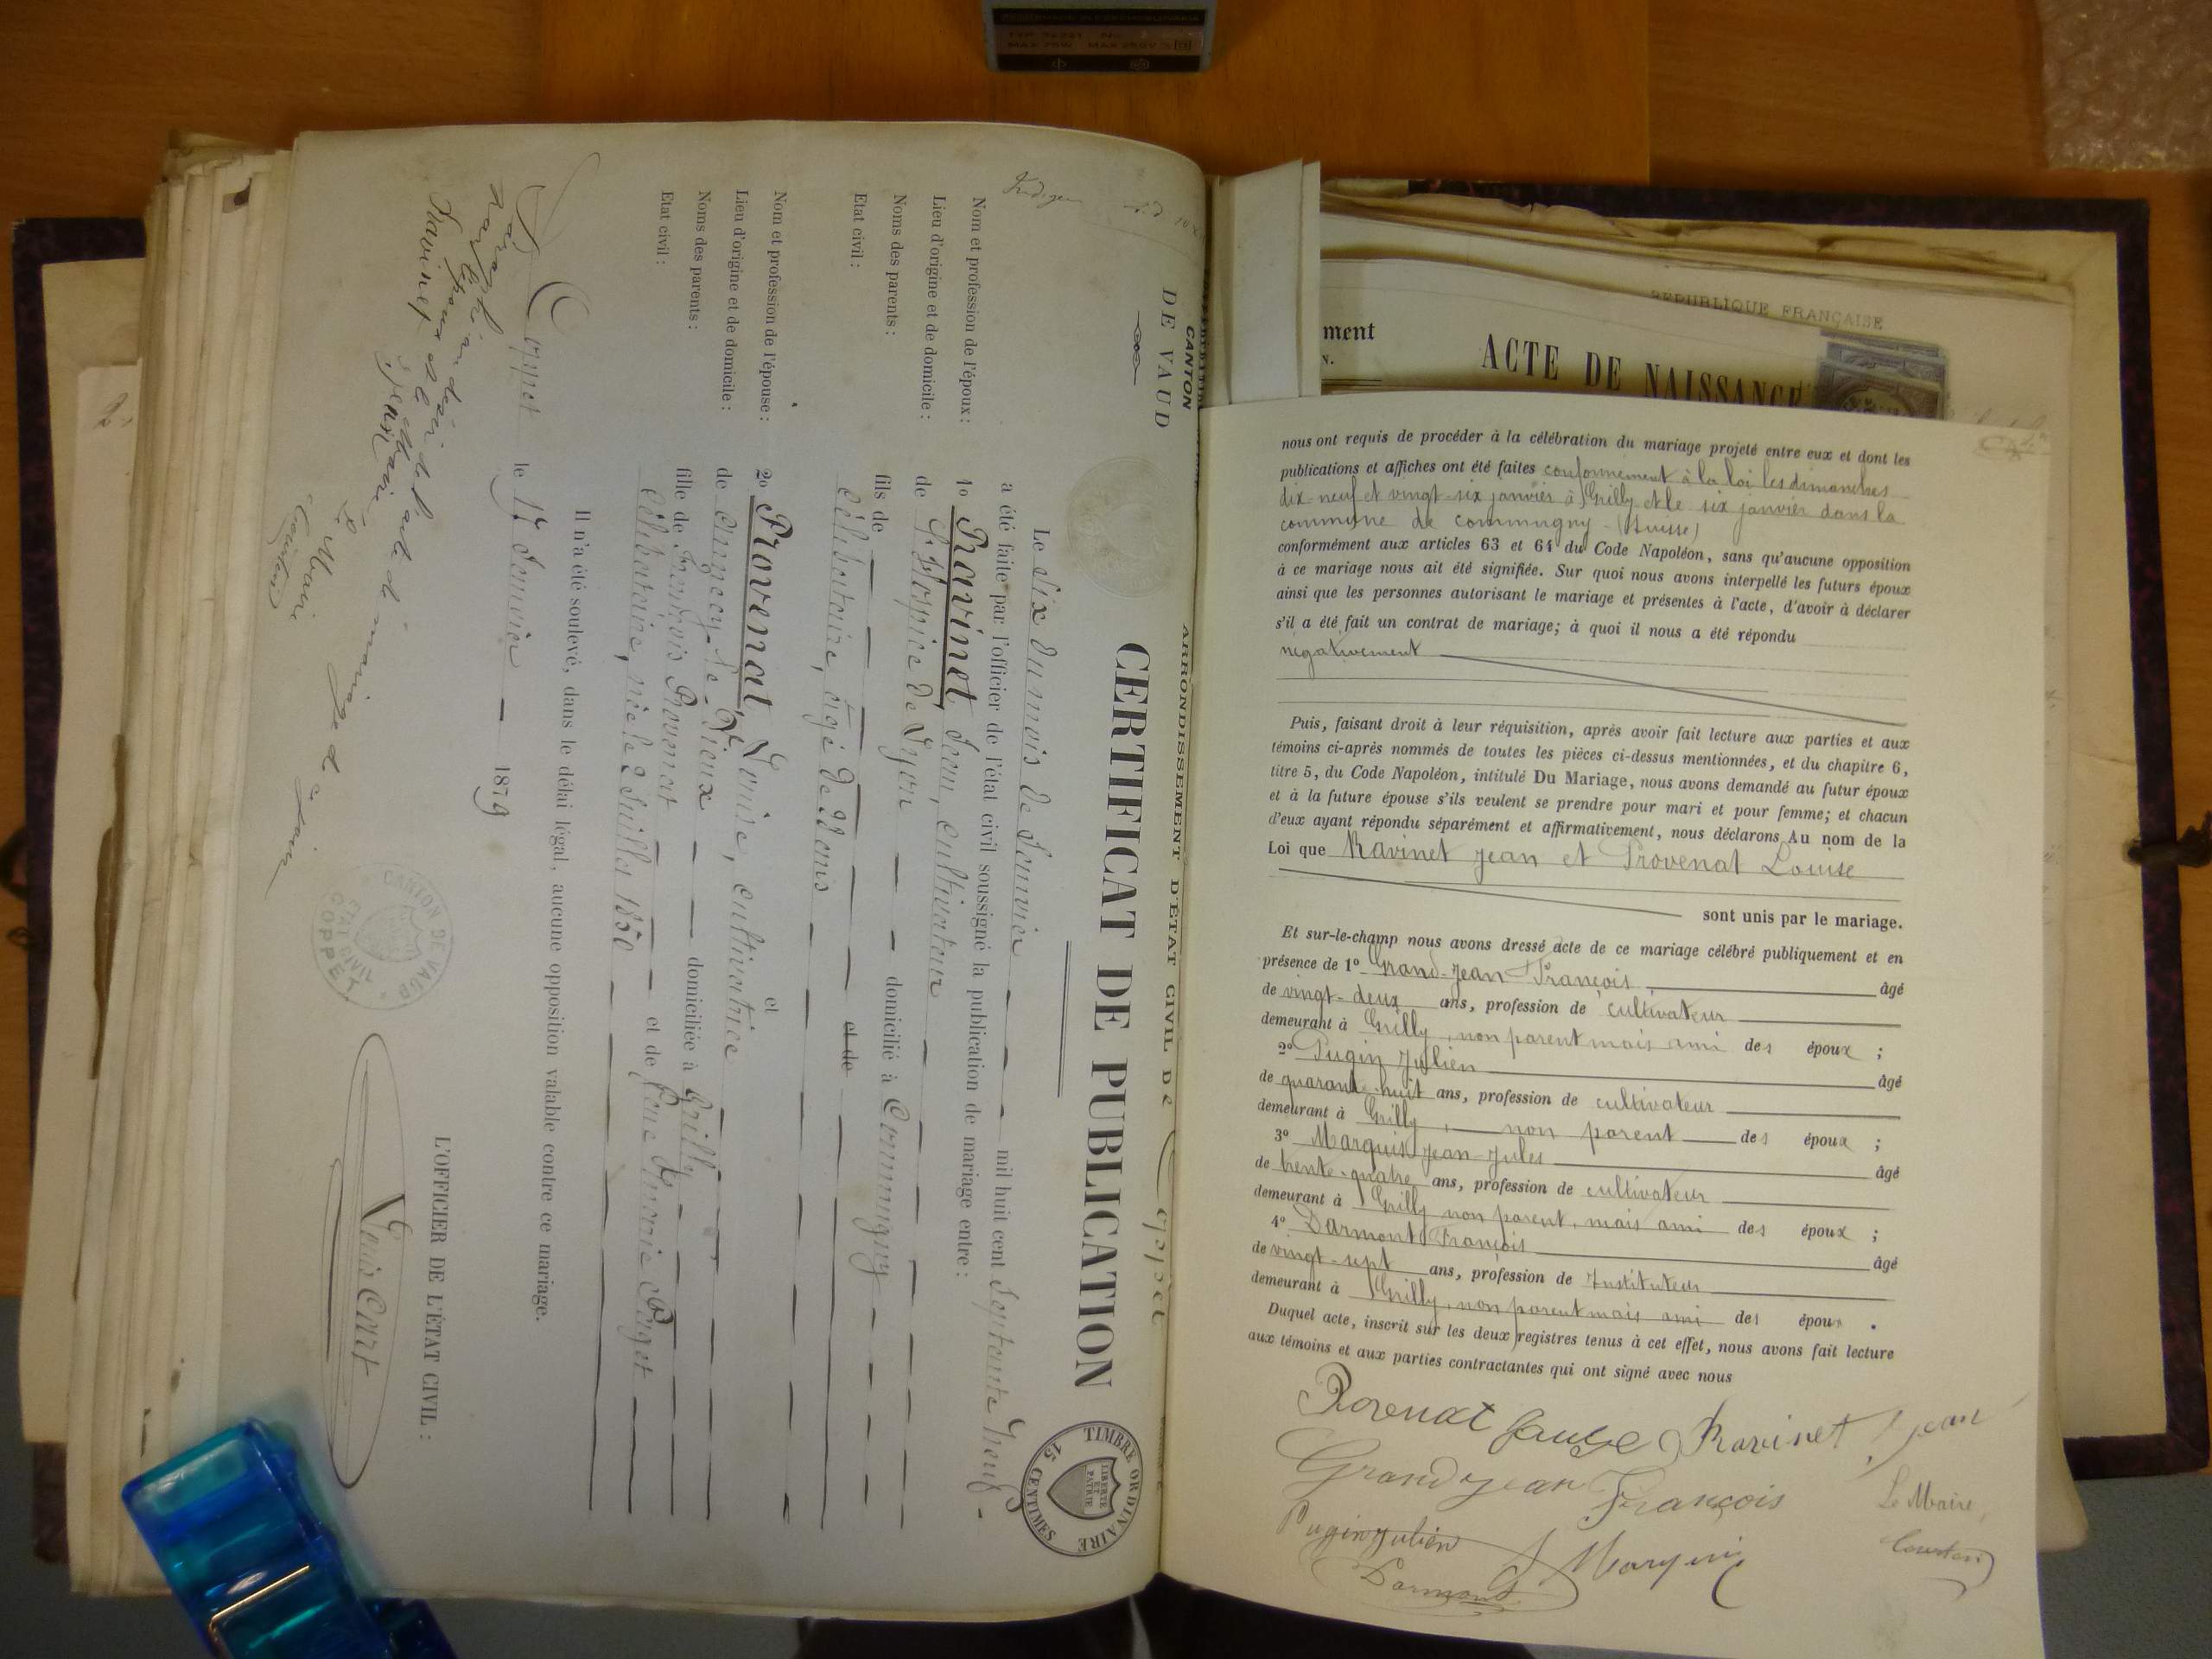 CANTON
DE VAUD
ARRONDISSEMENT D'ÉTAT CIVIL DE Coppet
CERTIFICAT DE PUBLICATION
TIMBRE ORDINAIRE
LIBERTÉ
ET
PATRIE
15 CENTIMES
Le Six du mois de Janvier mil huit cent Septante Neuf
a été faite par l'officier de l'état civil soussigné la publication de mariage entre :
Nom et profession de l'époux : 1o Ravinet Jean, cultivateur
Lieu d'origine et de domicile : de L'Hospice de Lyon domicilié à Commugny
Noms des parents : fils de et de
Etat civil : Célibataire, âgé de 22 ans
et
Nom et profession de l'épouse : 2o Provenat, Louise, cultivatrice
Lieu d'origine et de domicile : de Annecy-le-Vieux domiciliée à Grilly
Noms des parents : fille de François Provenat et de
Etat civil : Célibataire, née le 2 Juillet 1850
Il n'a été soulevé, dans le délai légal, aucune opposition valable contre ce mariage.
Coppet le 17 Janvier 1879
L'OFFICIER DE L'ÉTAT CIVIL :
Louis Court
CANTON DE VAUD
ETAT CIVIL
COPPET
Ravinet Jean
Le Maire
RÉPUBLIQUE FRANÇAISE
ment
N.
ACTE DE NAISSANCE
nous ont requis de procéder à la célébration du mariage projeté entre eux et dont les
publications et affiches ont été faites conformement à la loi les dimanches
dix-neuf et vingt-six janvier à Grilly et le six janvier dans la
commune de commugny (Suisse)
conformément aux articles 63 et 64 du Code Napoléon, sans qu'aucune opposition
à ce mariage nous ait été signifiée. Sur quoi nous avons interpellé les futurs époux
ainsi que les personnes autorisant le mariage et présentes à l'acte, d'avoir à déclarer
s'il a été fait un contrat de mariage; à quoi il nous a été répondu
négativement
Puis, faisant droit à leur réquisition, après avoir fait lecture aux parties et aux
témoins ci-après nommés de toutes les pièces ci-dessus mentionnées, et du chapitre 6,
titre 5, du Code Napoléon, intitulé Du Mariage, nous avons demandé au futur époux
et à la future épouse s'ils veulent se prendre pour mari et pour femme; et chacun
d'eux ayant répondu séparément et affirmativement, nous déclarons Au nom de la
Loi que Ravinet Jean et Provenat Louise
sont unis par le mariage.
Et sur-le-champ nous avons dressé acte de ce mariage célébré publiquement et en
présence de 1o Grand-Jean François âgé
de vingt-deux ans, profession de cultivateur
demeurant à Grilly, non parent mais ami des époux ;
2o Pugin Julien âgé
de quarante-huit ans, profession de cultivateur
demeurant à Grilly, non parent des époux ;
3o Marquis Jean-Jules âgé
de trente-quatre ans, profession de cultivateur
demeurant à Grilly non parent, mais ami des époux ;
4o Darmont François âgé
de vingt-sept ans, profession de Instituteur
demeurant à Grilly, non parent mais ami des époux .
Duquel acte, inscrit sur les deux registres tenus à cet effet, nous avons fait lecture
aux témoins et aux parties contractantes qui ont signé avec nous
Provenat Louise Ravinet Jean
Grandjean François Le Maire,
Pugin Julien J Marquis
Darmont